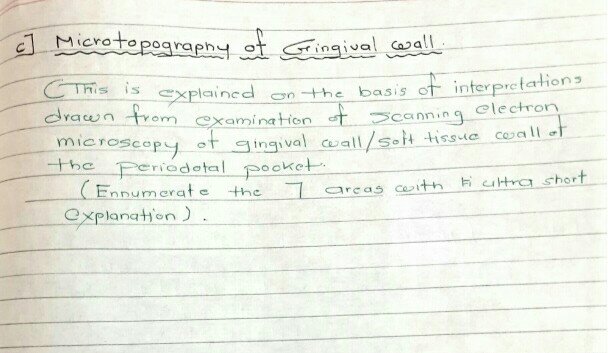 c] Microtopography of Gingival wall.
(This is explained on the basis of interpretations
drawn from examination of scanning electron
microscopy of gingival wall/soft tissue wall of
the periodotal pocket.
(Ennumerate the 7 areas with ultra short
explanation).